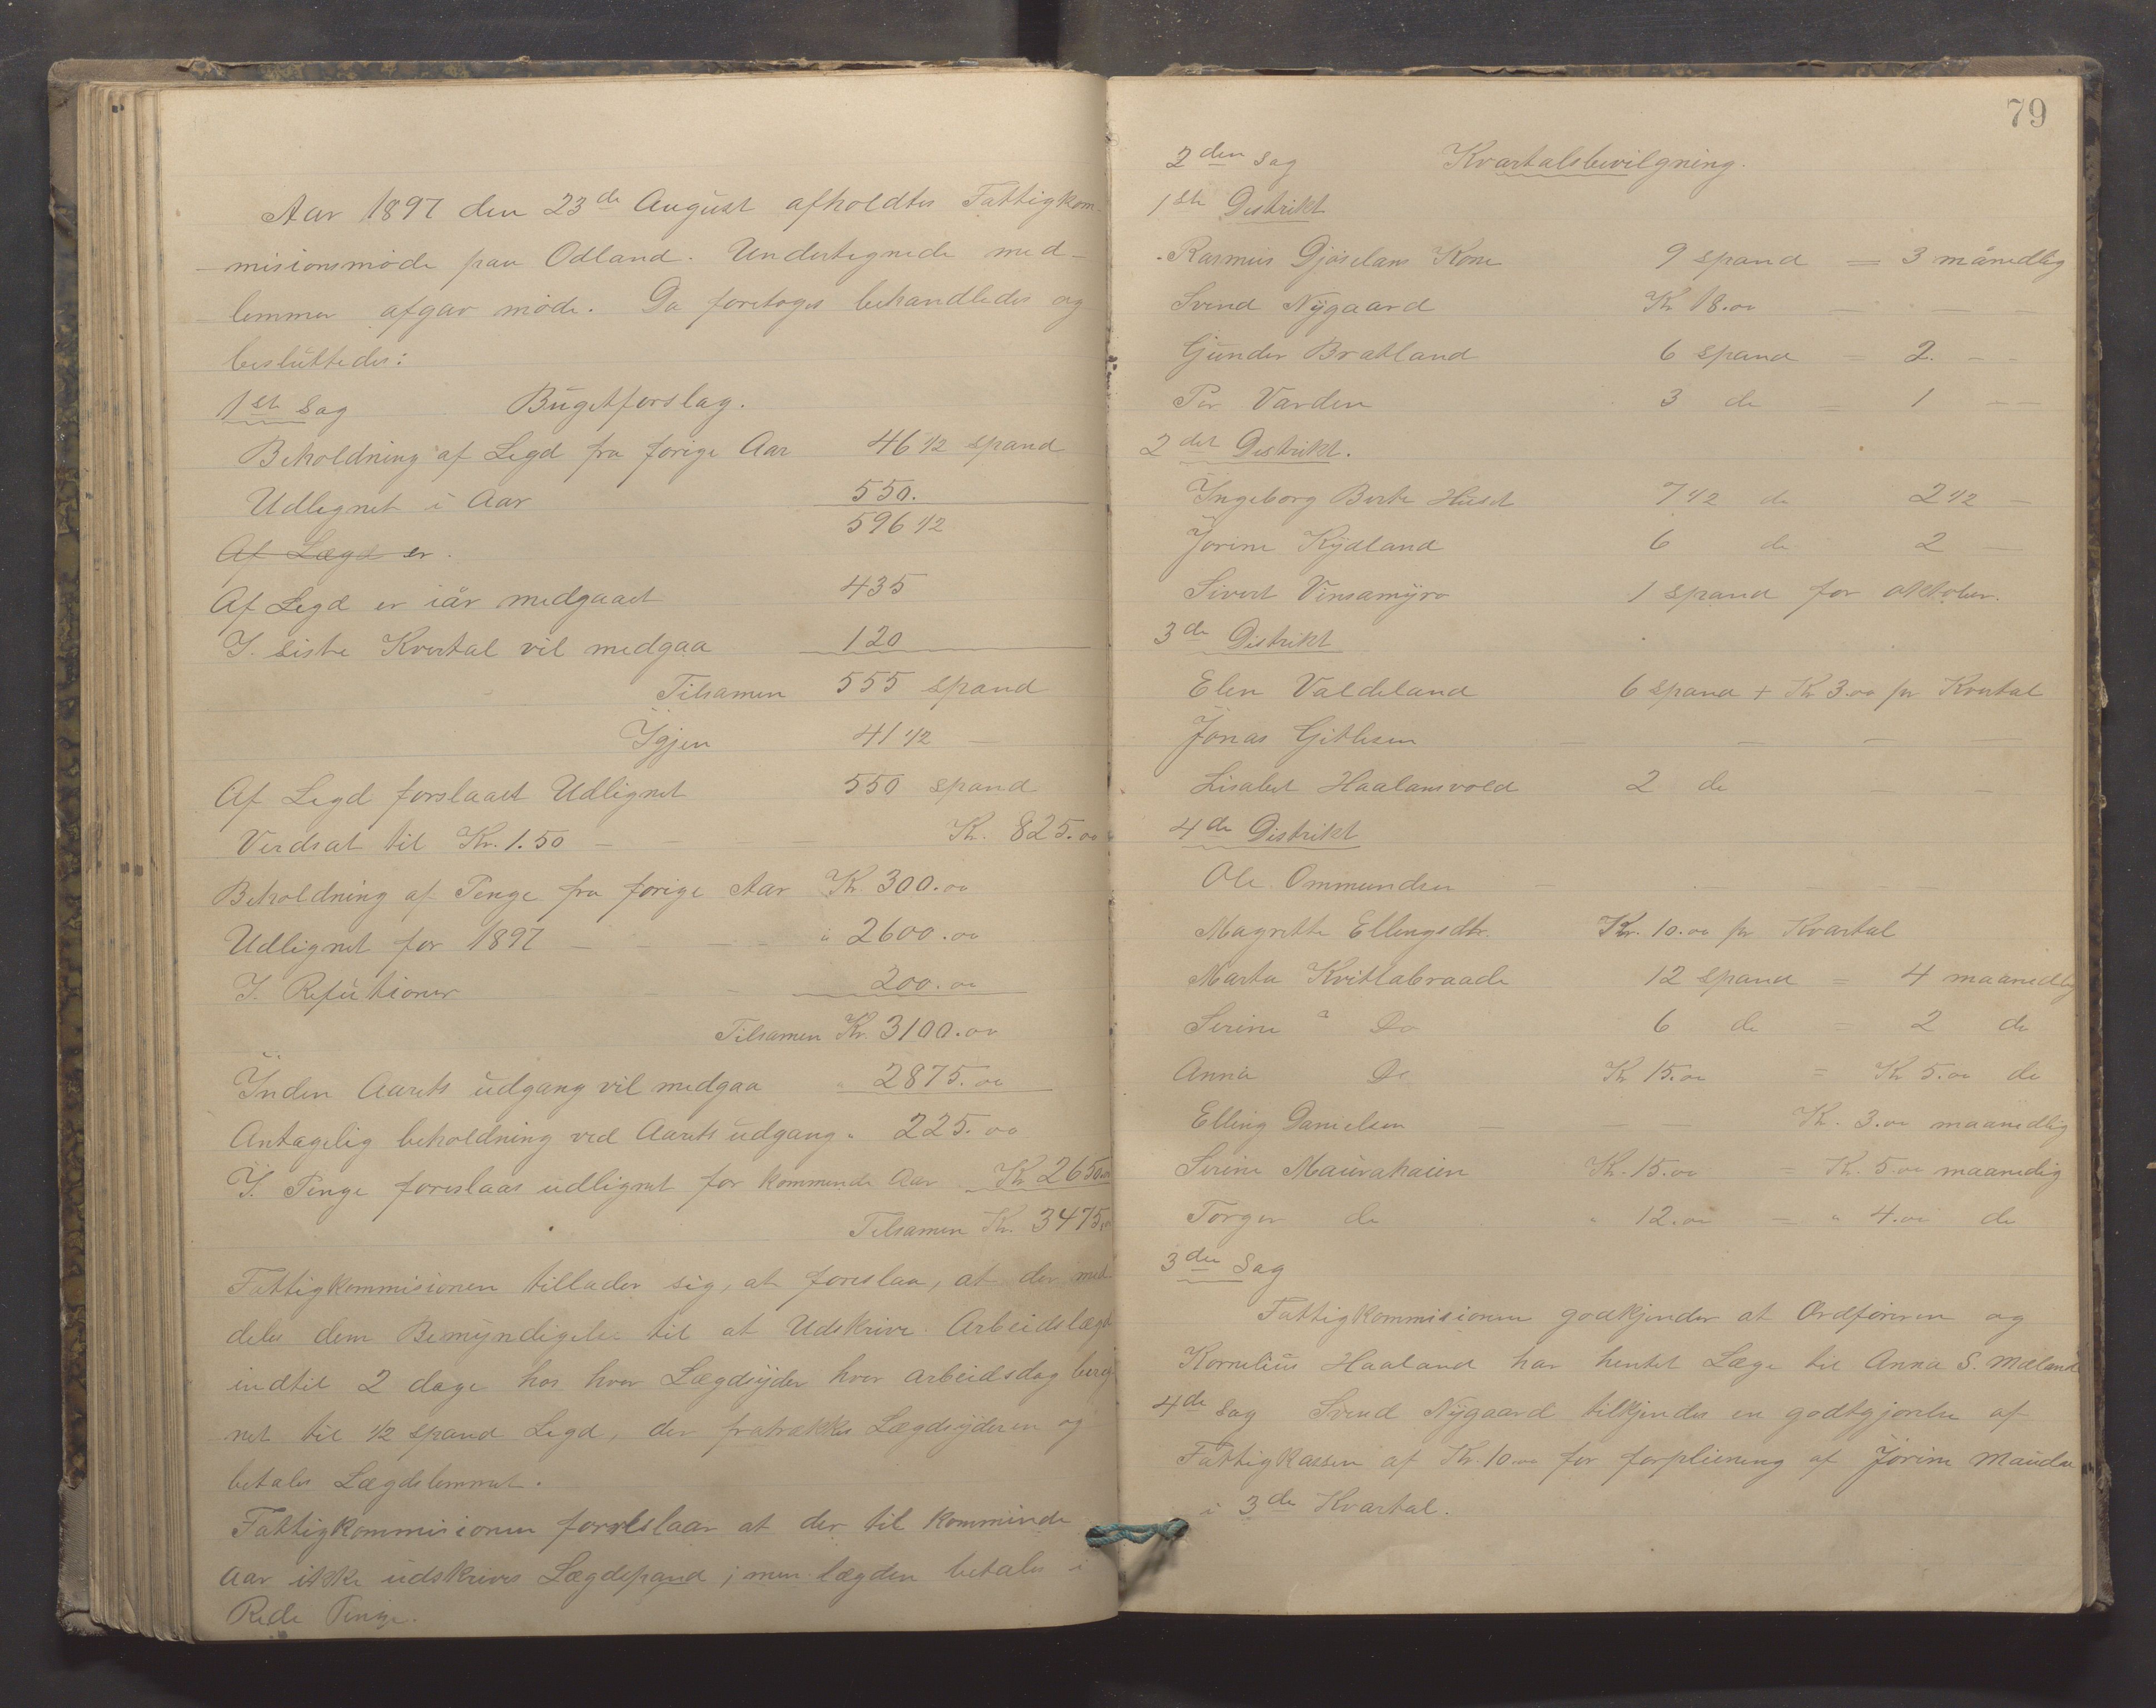 Aar 1897 den 23de August afholdtes Fattigkom-
misionsmöde paa Odland. Undertegnede med-
lemmer afgav möde. Da foretoges behandledes og
besluttedes:
1ste Sag Bugetforslag.
Beholdning af Legd fra forige Aar 46 1/2 spand
Udlignet i Aar 550.
596 1/2
Af Lægd er.
Af Legd er iår medgaaet 435
I. siste Kvertal vil medgaa 120
Tilsamen 555 spand
Igjen 41 1/2 —
Af Legd forslaaet Udlignet 550 spand
Verdsat til Kr. 1.50 — — — Kr. 825.00
Beholdning af Penge fra forige Aar Kr. 300.00
Udlignet for 1897 — — — — " 2600.00
I. Refutioner — — 200.00
Tilsamen Kr. 3100.00
Inden Aarets udgang vil medgaa " 2875.00
Antagelig beholdning ved Aarets udgang " 225.00
I. Penge foreslaas udlignet for kommende Aar Kr 2650.00
Tilsamen Kr. 3475.00
Fattigkommisionen tillader sig, at foreslaa, at der med-
deles dem Bemyndigelse til at Udskrive Arbeidslægd
indtil 2 dage hos hver Lægdsyder hver arbeidsdag bereg
net til 1/2 spand Legd, der fratrækkes Lægdsyderen og
betales Lægdslemmet.
Fattigkommisionen forelslaar at der til kommende
Aar ikke udskrives Lægdspand; men lægden betales i
Rede Penge.
79
2den Sag Kvartalsbevilgning.
1ste Distrikt
Rasmus Gjöselans Kone 9 spand = 3 månedlig
Svend Nygaard Kr 18.00 — — —
Gunder Bratland 6 spand = 2. — —
Per Varden 3 do = 1 — —
2det Distrikt.
Ingeborg Berte Huset 7 1/2 do 2 1/2 —
Jorine Kydland 6 do 2 —
Sivert Vinsamyro 1 spand for oktober.
3de Distrikt
Elen Valdeland 6 spand + Kr 3.00 pr Kvertal
Jonas Gitlesen — — — —
Lisabet Haalansvold 2 do — —
4de Distrikt
Ole Ommundsen — — —
Magrethe Ellingsdtr. Kr. 10.00 pr Kvartal
Marta Kvitlabraade 12 spand = 4 maanedlig
Serine " Do 6 do = 2 do
Anna Do Kr 15.00 = Kr 5.00 do
Elling Danielsen — — Kr. 3.00 maanedlig
Serine Maurahaien Kr. 15.00 = Kr. 5.00 maanedig
Torger do " 12.00 = " 4.00 do
3die Sag
Fattigkommisionen godkjender at Ordföreren og
Kornelius Haaland har hentet Læge til Anna S. Mæland
4de Sag Svend Nygaard tilkjendes en godtgjorelse af
Fattigkassen af Kr. 10.00 for forpliening af Jörine Maudal
i 3de Kvartal.